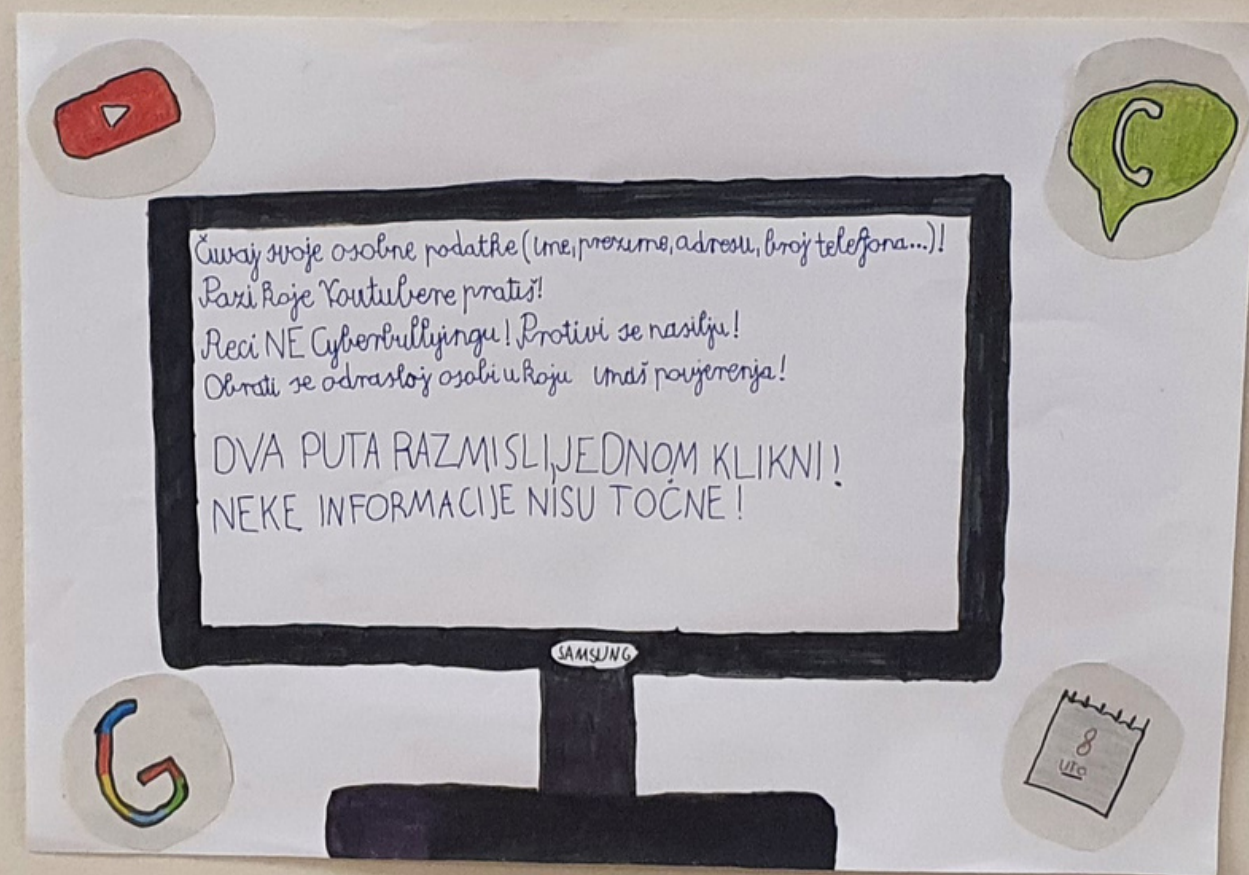 Čuvaj svoje osobne podatke (ime, prezime, adresu, broj telefona...)!
Pazi koje Youtubere pratiš!
Reci NE Cyberbullyingu! Protivi se nasilju!
Obrati se odrasloj osobi u koju imaš povjerenja!
DVA PUTA RAZMISLI, JEDNOM KLIKNI!
NEKE INFORMACIJE NISU TOČNE!
SAMSUNG
G
8
UTO